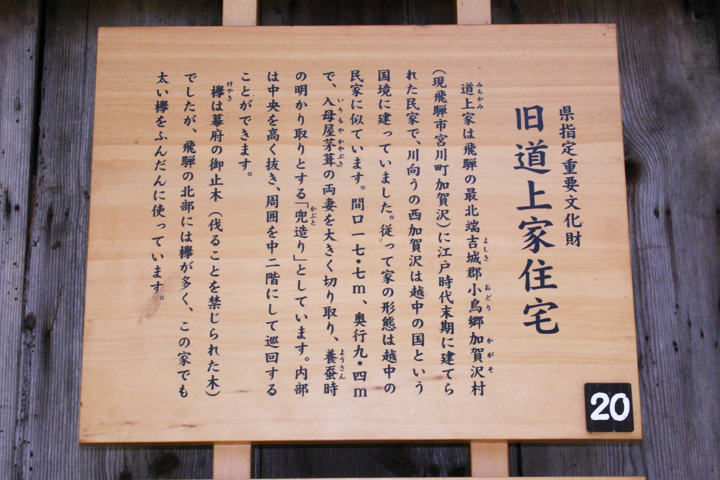 県指定重要文化財
旧道上家住宅
道上家は飛騨の最北端吉城郡小鳥郷加賀沢村
みちかみ
よしき
おどり
かがそ
(現飛騨市宮川町加賀沢)に江戸時代末期に建てら
れた民家で、川向うの西加賀沢は越中の国という
国境に建っていました。従って家の形態は越中の
民家に似ています。間口一七・七m、奥行九・四m
で、入母屋茅葺の両妻を大きく切り取り、養蚕時
いりもやかやぶき
ようさん
の明かり取りとする「兜造り」としています。内部
かぶと
は中央を高く抜き、周囲を中二階にして巡回する
ことができます。
欅は幕府の御止木(伐ることを禁じられた木)
けやき
でしたが、飛騨の北部には欅が多く、この家でも
太い欅をふんだんに使っています。
20